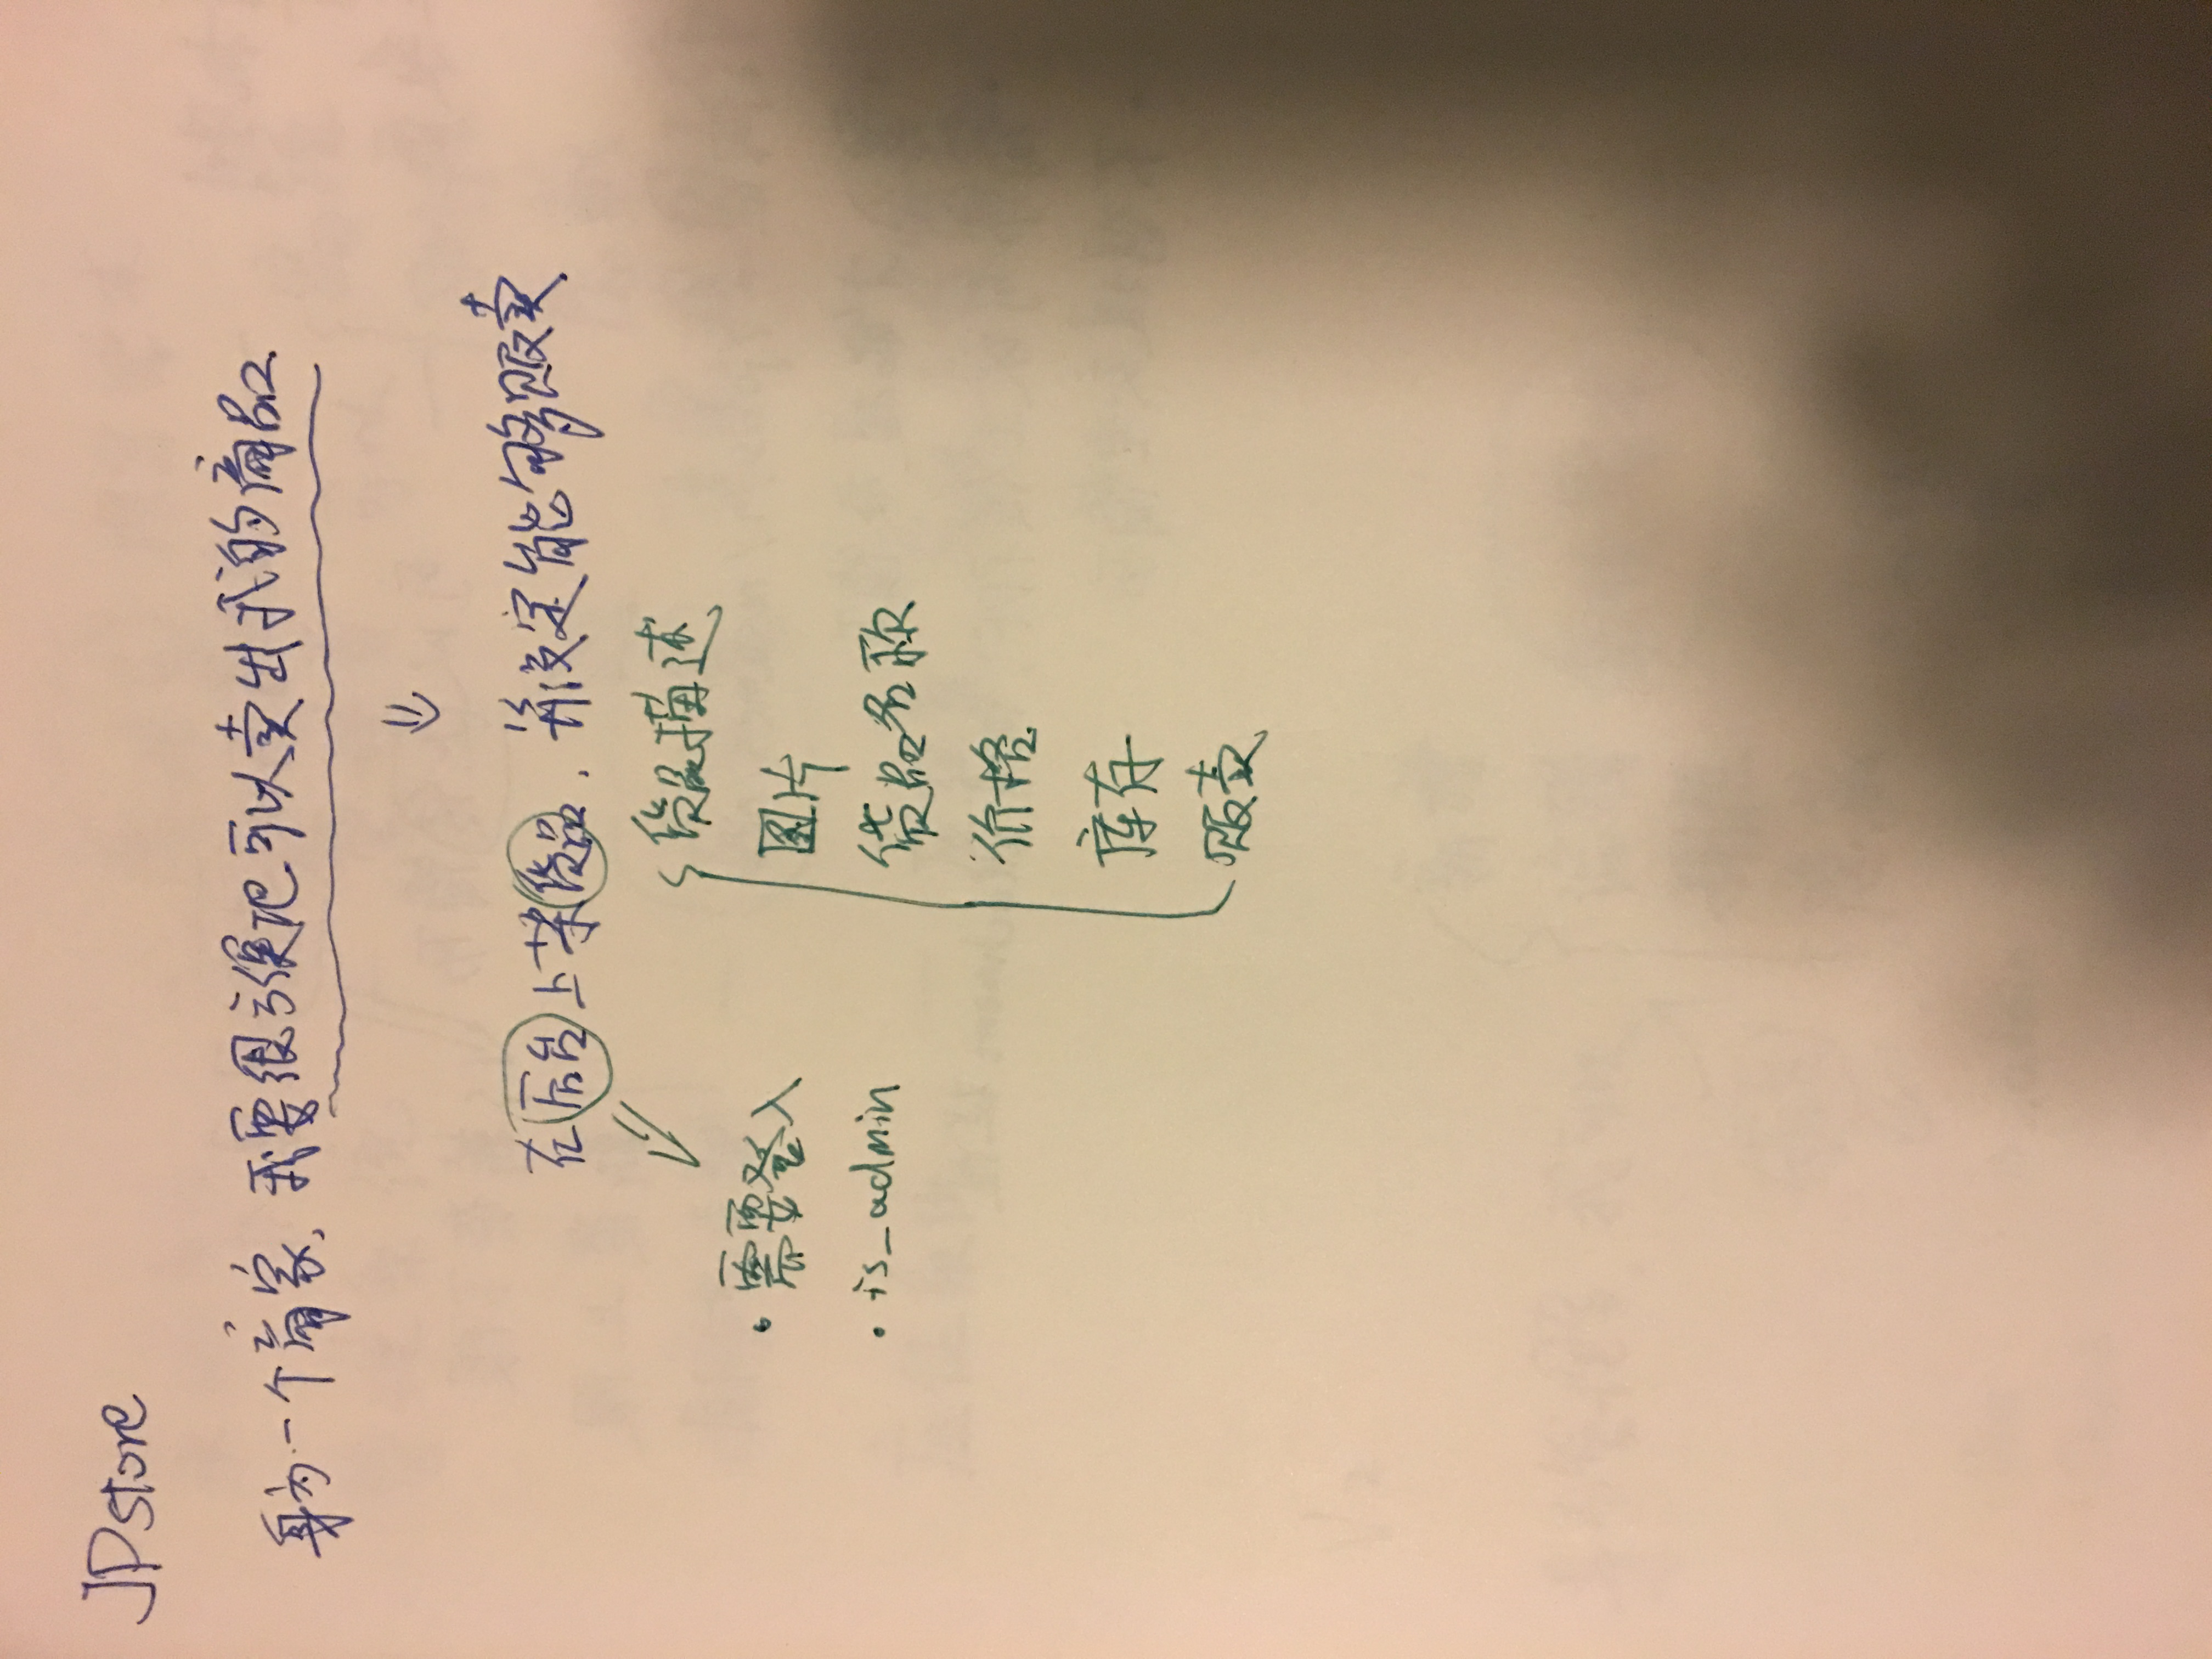 JPstore
身为一个商家,我要很方便地可以卖出我的商品.
在后台上架货品,并设定能够贩卖
·需要登入
·is_admin
货品描述
图片
货品名称
价格
库存
贩卖